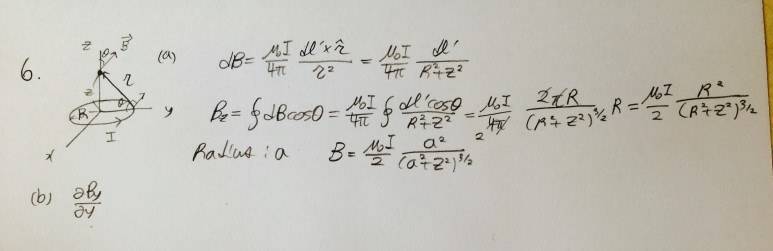 6.
z B⃗ θ
r
z
θ
R y
I
x
(a) dB = μ₀I/4π dl′×r̂/r² = μ₀I/4π dl′/R²+z²
B_z = ∮dBcosθ = μ₀I/4π ∮ dl′cosθ/R²+z² = μ₀I/4π 2 2πR/(R²+z²)^3/2 R = μ₀I/2 R²/(R²+z²)^3/2
Radius : a B = μ₀I/2 a²/(a²+z²)^3/2
(b) ∂By/∂y